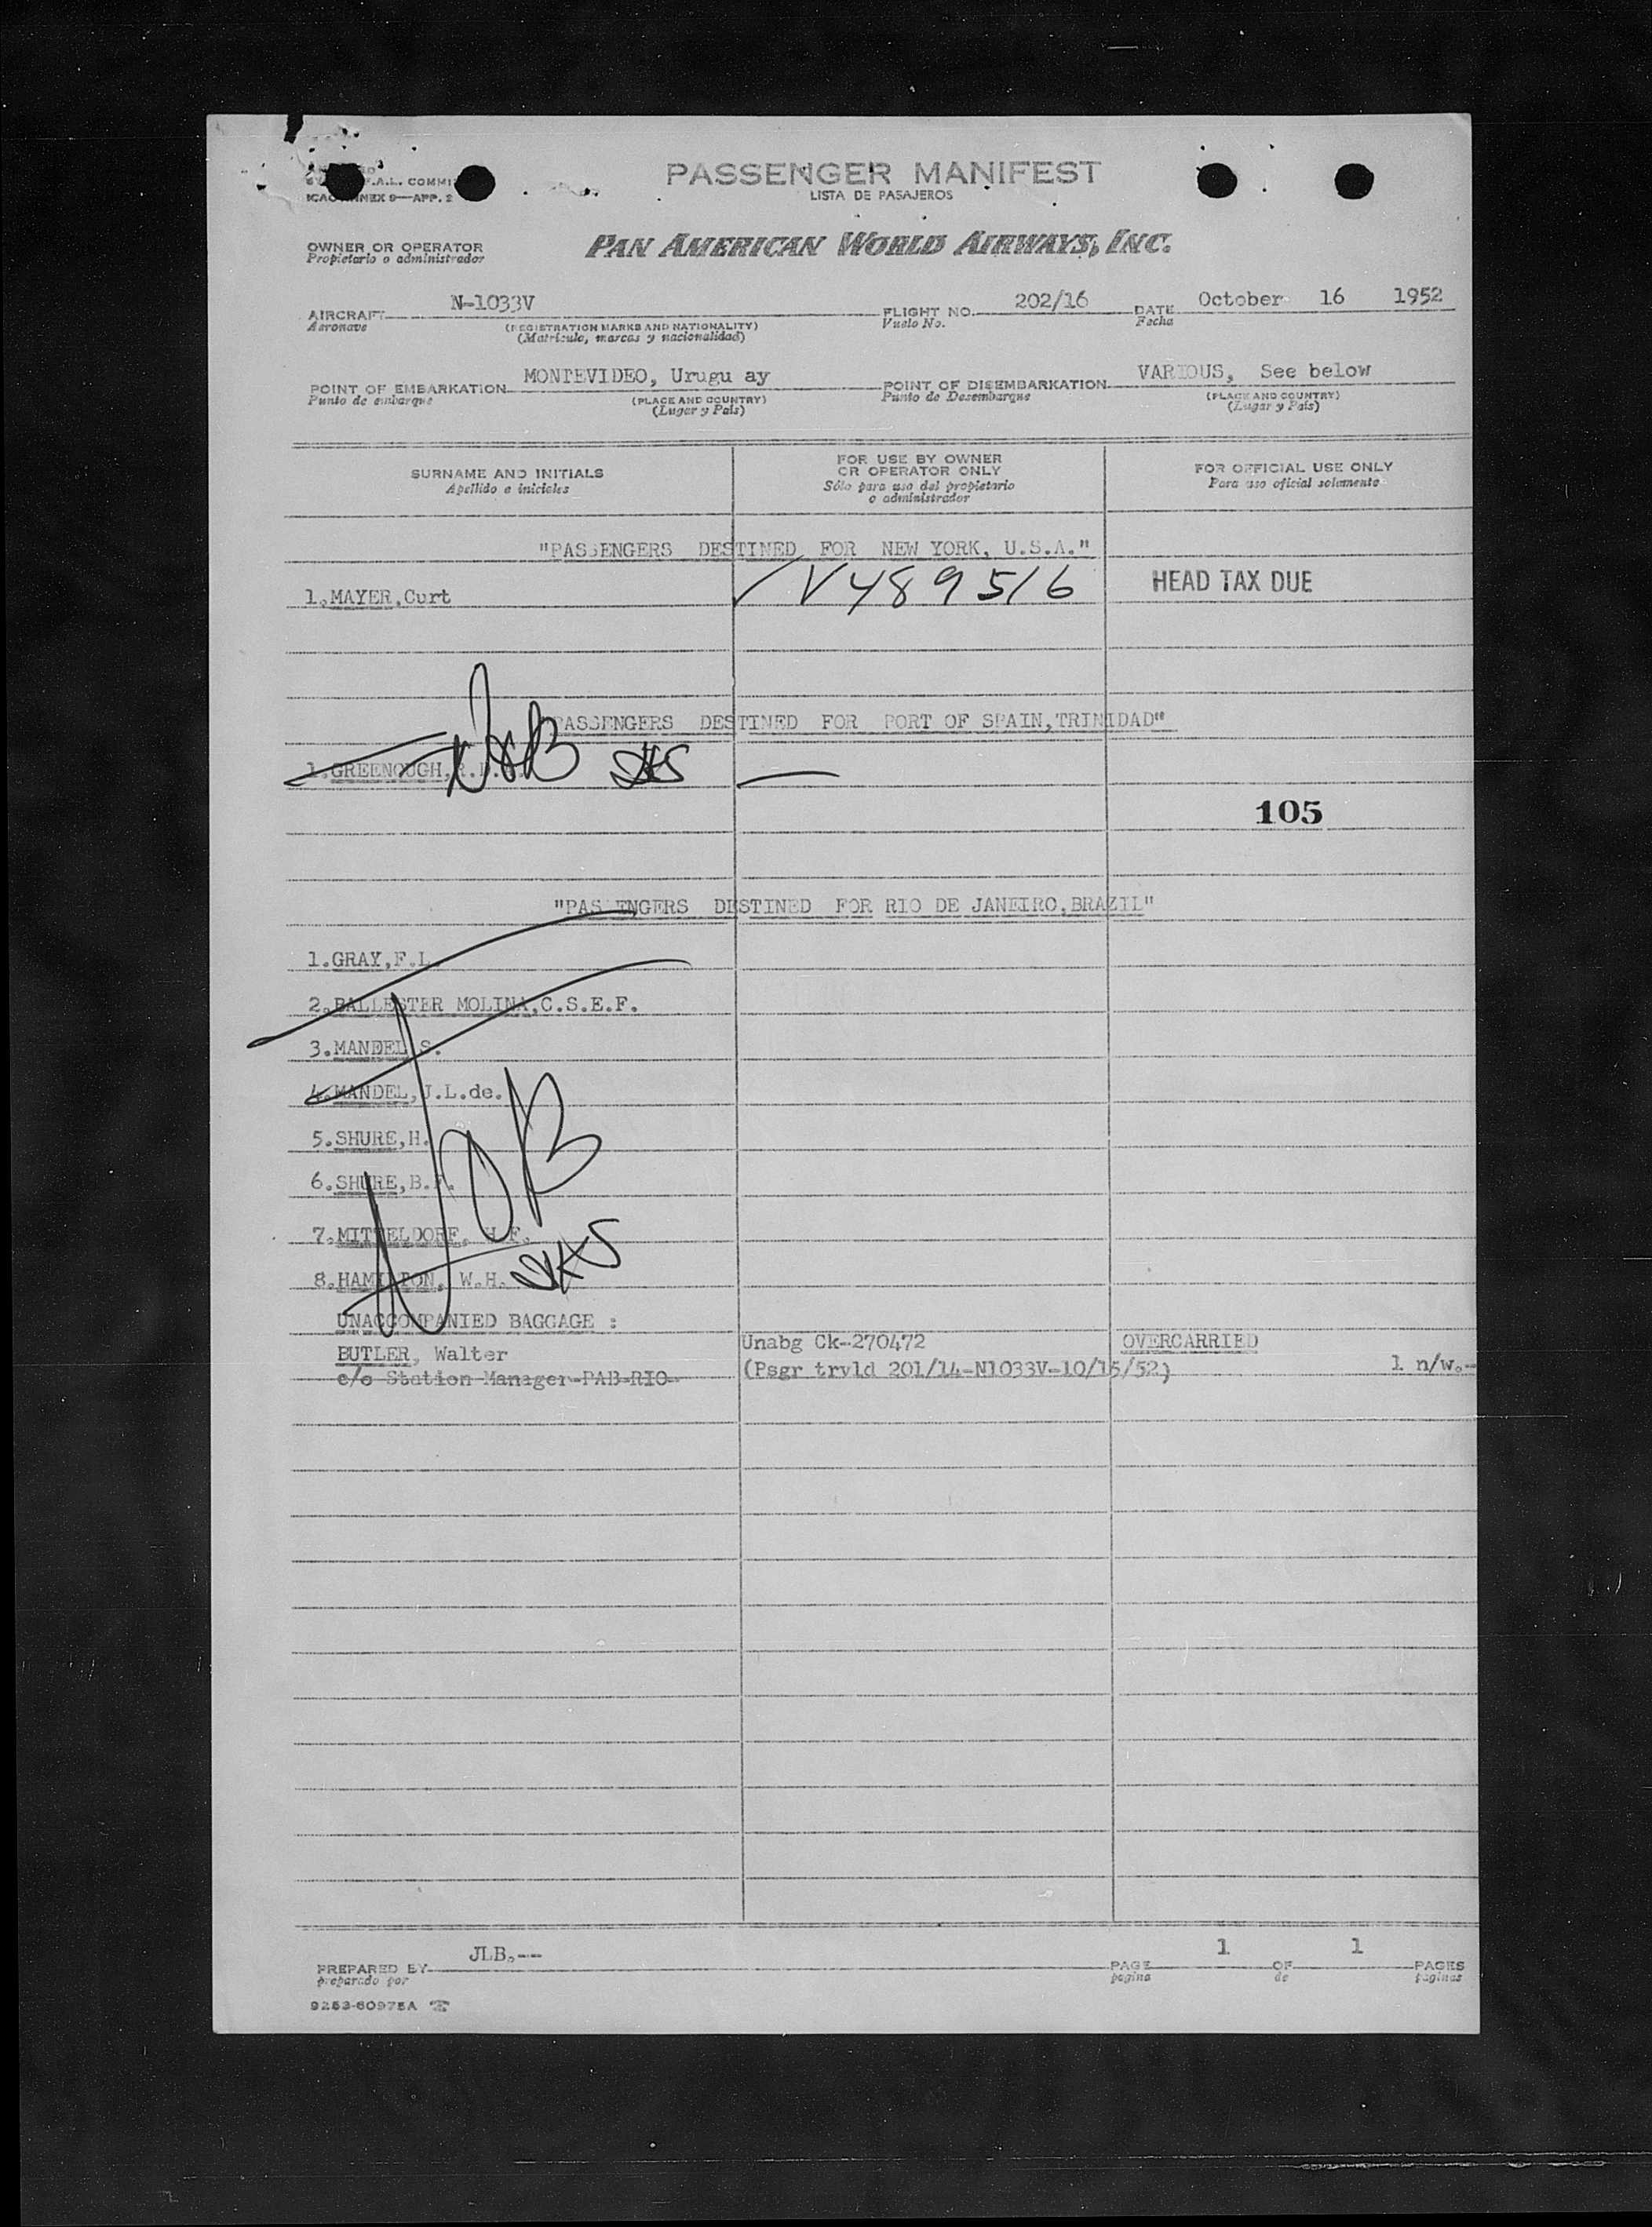 PASSENGER MANIFEST
LISTA DE PASAJEROS
F.A.L. COMMI
ICAO ANNEX 9—APP. 2
OWNER OR OPERATOR
Propietario o administrador
PAN AMERICAN WORLD AIRWAYS, INC.
AIRCRAFT N-1033V FLIGHT NO. 202/16 DATE October 16 1952
Aeronave (REGISTRATION MARKS AND NATIONALITY) Vuelo No. Fecha
(Matrícula, marcas y nacionalidad)
POINT OF EMBARKATION MONTEVIDEO, Urugu ay POINT OF DISEMBARKATION VARIOUS, See below
Punto de embarque (PLACE AND COUNTRY) Punto de Desembarque (PLACE AND COUNTRY)
(Lugar y País) (Lugar y País)
SURNAME AND INITIALS FOR USE BY OWNER OR OPERATOR ONLY FOR OFFICIAL USE ONLY
Apellido e iniciales Sólo para uso del propietario o administrador Para uso oficial solamente
"PASSENGERS DESTINED FOR NEW YORK, U.S.A."
1.MAYER,Curt V489516 HEAD TAX DUE
"PASSENGERS DESTINED FOR PORT OF SPAIN,TRINIDAD"
1.GREENOUGH,R.D.
105
"PASSENGERS DESTINED FOR RIO DE JANEIRO,BRAZIL"
1.GRAY,F.L.
2.BALLESTER MOLINA,C.S.E.F.
3.MANDEL,S.
4.MANDEL,J.L.de.
5.SHURE,H.
6.SHURE,B.
7.MITTELDORF, H.F.
8.HAMILTON, W.H.
UNACCOMPANIED BAGGAGE :
BUTLER, Walter Unabg Ck-270472 OVERCARRIED
c/o Station Manager-PAB-RIO- (Psgr trvld 201/14-N1033V-10/15/52) 1 n/w.-
PREPARED BY JLB.-- PAGE 1 OF 1 PAGES
preparado por página de páginas
9253-60975A